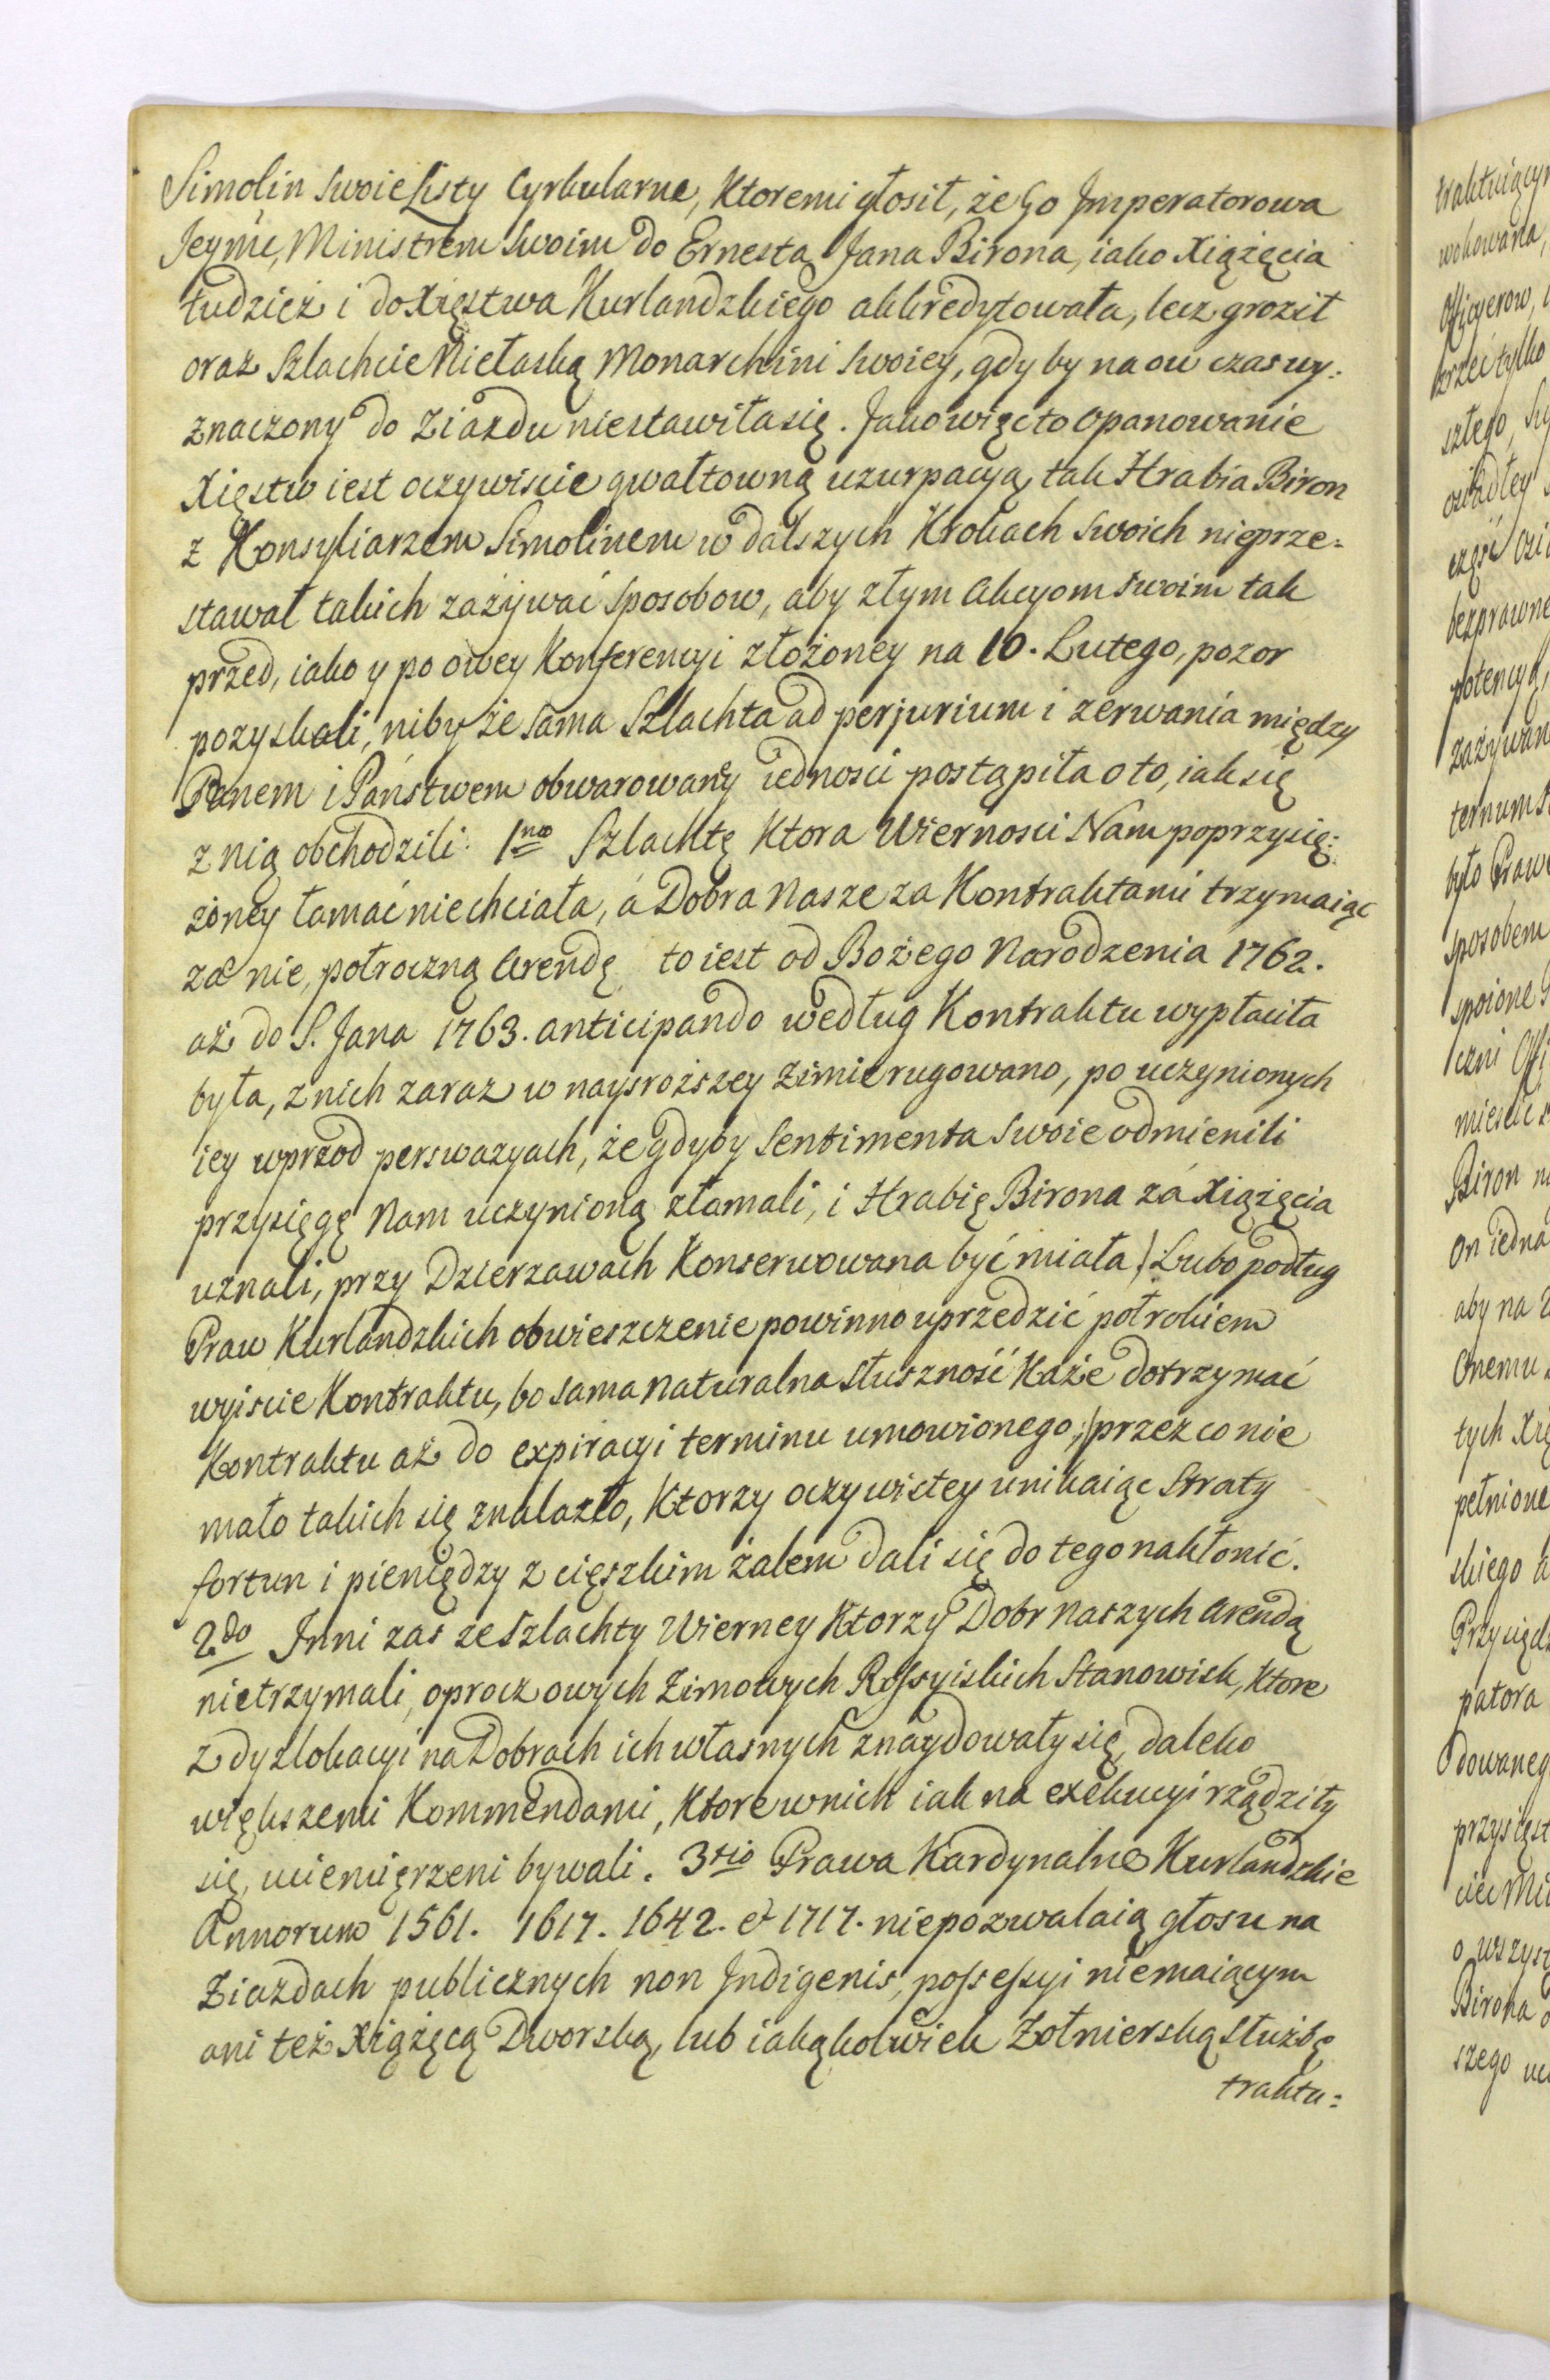 Simolin swoie Listy Cyrkularne, Ktoremi głosił, że Go Imperatorowa
Jeymć, Ministrem swoim do Ernesta Jana Birona, iako Xiążęcia
tudzież i do Xięstwa Kurlandzkiego akkredytowała, lecz groził
oraz Szlachcie Niełaską Monarchini swoiey, gdyby na ow czas wy:
znaczony do Ziazdu niestawiła się. Jako więc to opanowanie
Xięstw iest oczywiście gwałtowną uzurpacyą, tak Hrabia Biron
z Konsyliarzem Simolinem w dalszych Krokach swoich nieprze:
stawał takich zażywać sposobow, aby złym Akcyom swoim tak
przed, iako y po owey Konferencyi złożoney na 10. Lutego, pozor
pozyskali, niby że sama Szlachta ad perjurium i zerwania między
Panem i Państwem obwarowaney iedności postąpiła oto, iak się
z nią obchodzili: 1mo Szlachtę Ktora Wierności Nam poprzysię:
żoney łamać niechciała, á Dobra Nasze za Kontraktami trzymaiąc
za nie, połroczną Arendę to iest od Bożego Narodzenia 1762.
aż do S. Jana 1763. anticipando według Kontraktu wypłaciła
była, z nich zaraz w naysroższey Zimie rugowano, po uczynionych
iey wprzod perswazyach, że gdyby Sentimenta swoie odmienili
przysięgę Nam uczynioną złamali, i Hrabię Birona zá Xiążęcia
uznali, przy Dzierzawach Konserwowana być miała /: Lubo podług
Praw Kurlandzkich obwieszczenie powinno uprzedzić połrokiem
wyiscie Kontraktu, bo sama naturalna słuszność Każe dotrzymać
Kontraktu aż do expiracyi terminu umowionego :/ przez co nie
mało takich się znalazło, Ktorzy oczywistey unikaiąc Straty
fortun i pieniędzy z cięszkim żalem dali się do tego nakłonić.
2do Inni zas ze Szlachty Wierney Ktorzy Dobr Naszych Arendą
nietrzymali, oprocz owych Zimowych Rossyiskich Stanowisk, Ktore
z dyzlokacyi na Dobrach ich własnych znaydowały się, daleko
większemi Kommendami, Ktore w nich iak na exekucyi rządziły
się, uciemięrzeni bywali. 3tio Prawa Kardynalne Kurlandzkie
Annorum 1561. 1617. 1642. & 1717. niepozwalaią głosu na
Ziazdach publicznych non Indigenis, possessyi niemaiącym
ani też Xiążęcą Dworską, lub iakąkolwiek Żołnierską służbę
traktu: